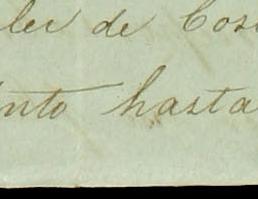 ler de Cos
nto hasta